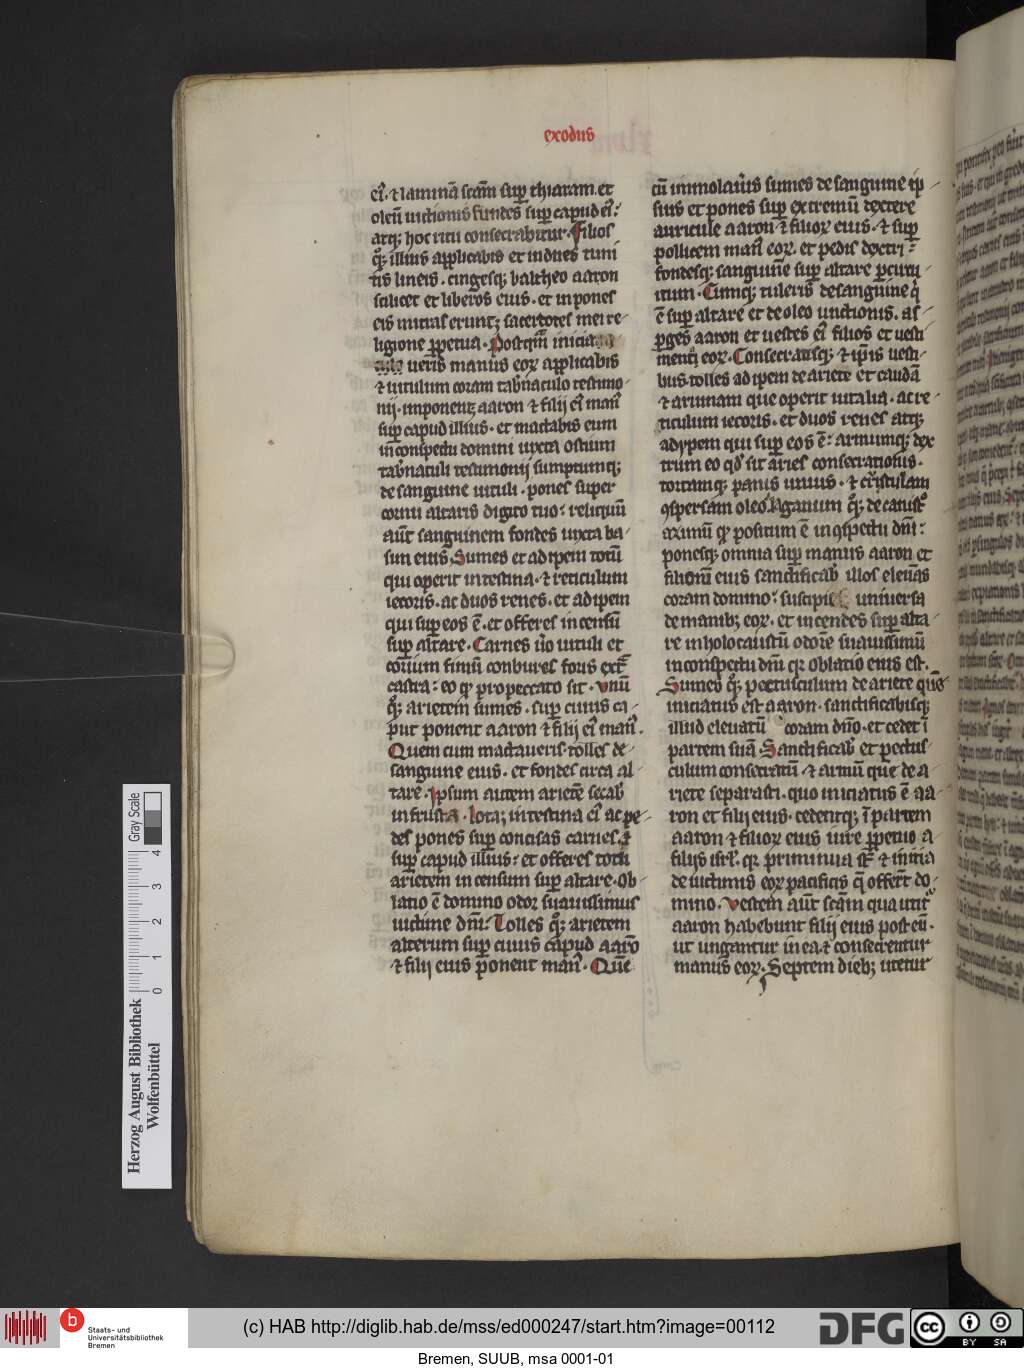 exodus
ei᷒. ⁊ laminā scām sup̄ thiaram. et
oleū unctionis fundes sup̄ capud ei᷒:
atq; hoc ritu consecrabitur. Filios
qͦq; illius applicabis et indues tuni
cis lineis. cingesq; baltheo aaron
scilicet et liberos eius. et inpones
eis mitras eruntq; sacerdotes mei re-
ligione ꝑpetua. Postqͣm inicia
ueris manus eoꝝ applicabis
⁊ uitulum coram tab̄naculo testimo-
nij. imponentq; aaron ⁊ filij ei᷒ man᷒
sup̄ capud illius. et mactabis eum
in conspectu domini iuxta ostium
tab̄naculi testimonij sumptumq;
de sanguine uituli. pones super
cornu altaris digito tuo: reliquū
aūt sanguinem fundes iuxta ba-
sim eius. Sumes et adipem totū
qui operit intestina. ⁊ reticulum
iecoris. ac duos renes. et adipem
qui sup̄ eos ē. et offeres incensū
sup̄ altare. Carnes ūo uituli et
corium fimū conbures foris extͣ
castra: eo qͩ pro peccato sit. Vnū
qͦq; arietem sumes. sup̄ cuius ca-
put ponent aaron ⁊ filij ei᷒ man᷒.
Quem cum mactaueris. tolles de-
sanguine eius. et fundes circa al-
tare. Ipsum autem arietē secab᷒
in frusta. lotaq; intestina ei᷒ ac pe-
des pones sup̄ concisas carnes. ⁊
sup̄ capud illius: et offeres totū
arietem in censum sup̄ altare. Ob-
latio ē domino odor suauissimus
uictime dn̄i. Tolles qͦq; arietem
alterum sup̄ cuius capud aarō
⁊ filij eius ponent man᷒. Quē
cū immolau᷒is sumes de sanguine ip-
sius et pones sup̄ extremū dextere
auricule aaron ⁊ filioꝝ eius. ⁊ sup̄
pollicem man᷒ eoꝝ. et pedis dextri:
fundesq; sanguinē sup̄ altare ꝑ circu-
itum. Cumq; tuleris de sanguine qͥ
ē sup̄ altare et de oleo unctionis. as-
ꝑges aaron et uestes ei᷒ filios et uesti-
menta eoꝝ. Consecratisq; ⁊ ip̄is uesti-
bus. tolles adipem de ariete et caudā
⁊ aruinam que operit uitalia. ac re-
ticulum iecoris. et duos renes atq;
adypem qui sup̄ eos ē: armumq; dex
trum eo qd̄ sit aries consecrationis.
tortamq; panis unius. ⁊ cr᷒istulam
ꝯspersam oleo. laganum qͦq; de canistͦ
azimū qͩ positum ē in ꝯspectu dn̄i:
ponesq; omnia sup̄ manus aaron et
filiorū eius sanctificab᷒ illos eleuās
coram domino: suscipies universa
de manibꝫ eoꝝ. et incendes sup̄ alta-
re in holocaustū odorē suauissimū
in conspectu dn̄i qꝛ oblatio eius est.
Sumes qͦq; pectusculum de ariete quo-
iniciatus est aaron. sanctificabisq;
illud eleuatū coram dn̄o. et cedet ī
partem tuā. Sanctificab᷒ et pectus-
culum consecratū. ⁊ armū que de a-
riete separasti. quo iniciatus ē aa-
ron et filij eius. cedentq; ī partem
aaron ⁊ filioꝝ eius iure ꝑpetuo a
filijs isrl̄. qꝛ primitiua sͭ ⁊ initia
de uictimis eoꝝ pacificis q̄ offerūt do-
mino. Vestem aūt scām qua utit᷒
aaron habebunt filij eius post eū.
ut ungantur in ea. ⁊ consecrentur
manus eoꝝ. Septem diebꝫ utetur
Gray Scale
0 1 2 3 4
Herzog August Bibliothek
Wolfenbüttel
b
Staats- und
Universitätsbibliothek
Bremen
(c) HAB http://diglib.hab.de/mss/ed000247/start.htm?image=00112
DFG
cc
BY SA
Bremen, SUUB, msa 0001-01